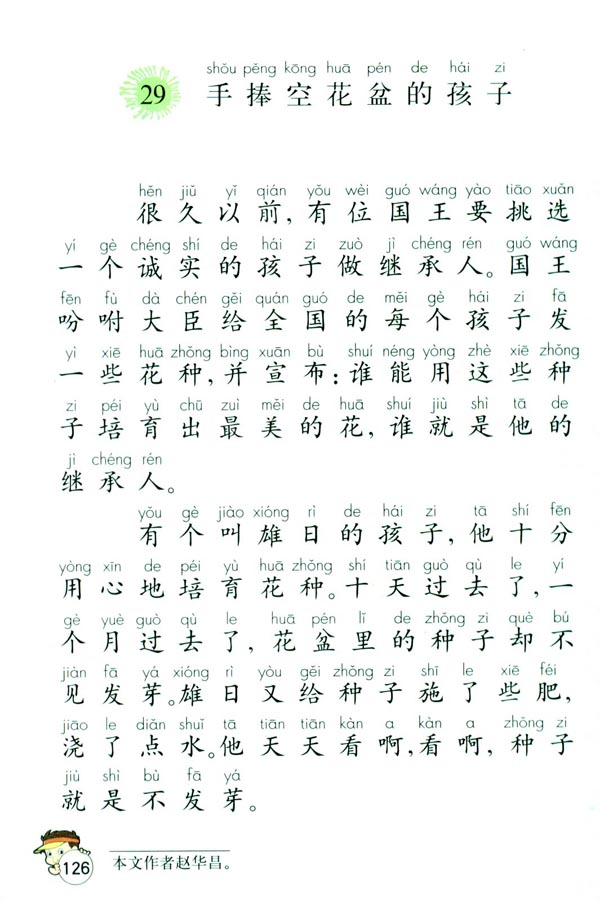 shǒu pěng kōng huā pén de hái zi
29 手捧空花盆的孩子
hěn jiǔ yǐ qián yǒu wèi guó wáng yào tiāo xuǎn
很久以前，有位国王要挑选
yí gè chéng shí de hái zi zuò jì chéng rén guó wáng
一个诚实的孩子做继承人。国王
fēn fù dà chén gěi quán guó de měi gè hái zi fā
吩咐大臣给全国的每个孩子发
yì xiē huā zhǒng bìng xuān bù shuí néng yòng zhè xiē zhǒng
一些花种，并宣布：谁能用这些种
zi péi yù chū zuì měi de huā shuí jiù shì tā de
子培育出最美的花，谁就是他的
jì chéng rén
继承人。
yǒu gè jiào xióng rì de hái zi tā shí fēn
有个叫雄日的孩子，他十分
yòng xīn de péi yù huā zhǒng shí tiān guò qù le yí
用心地培育花种。十天过去了，一
gè yuè guò qù le huā pén lǐ de zhǒng zi què bú
个月过去了，花盆里的种子却不
jiàn fā yá xióng rì yòu gěi zhǒng zi shī le xiē féi
见发芽。雄日又给种子施了些肥，
jiāo le diǎn shuǐ tā tiān tiān kàn a kàn a zhǒng zi
浇了点水。他天天看啊，看啊，种子
jiù shì bù fā yá
就是不发芽。
126 本文作者赵华昌。